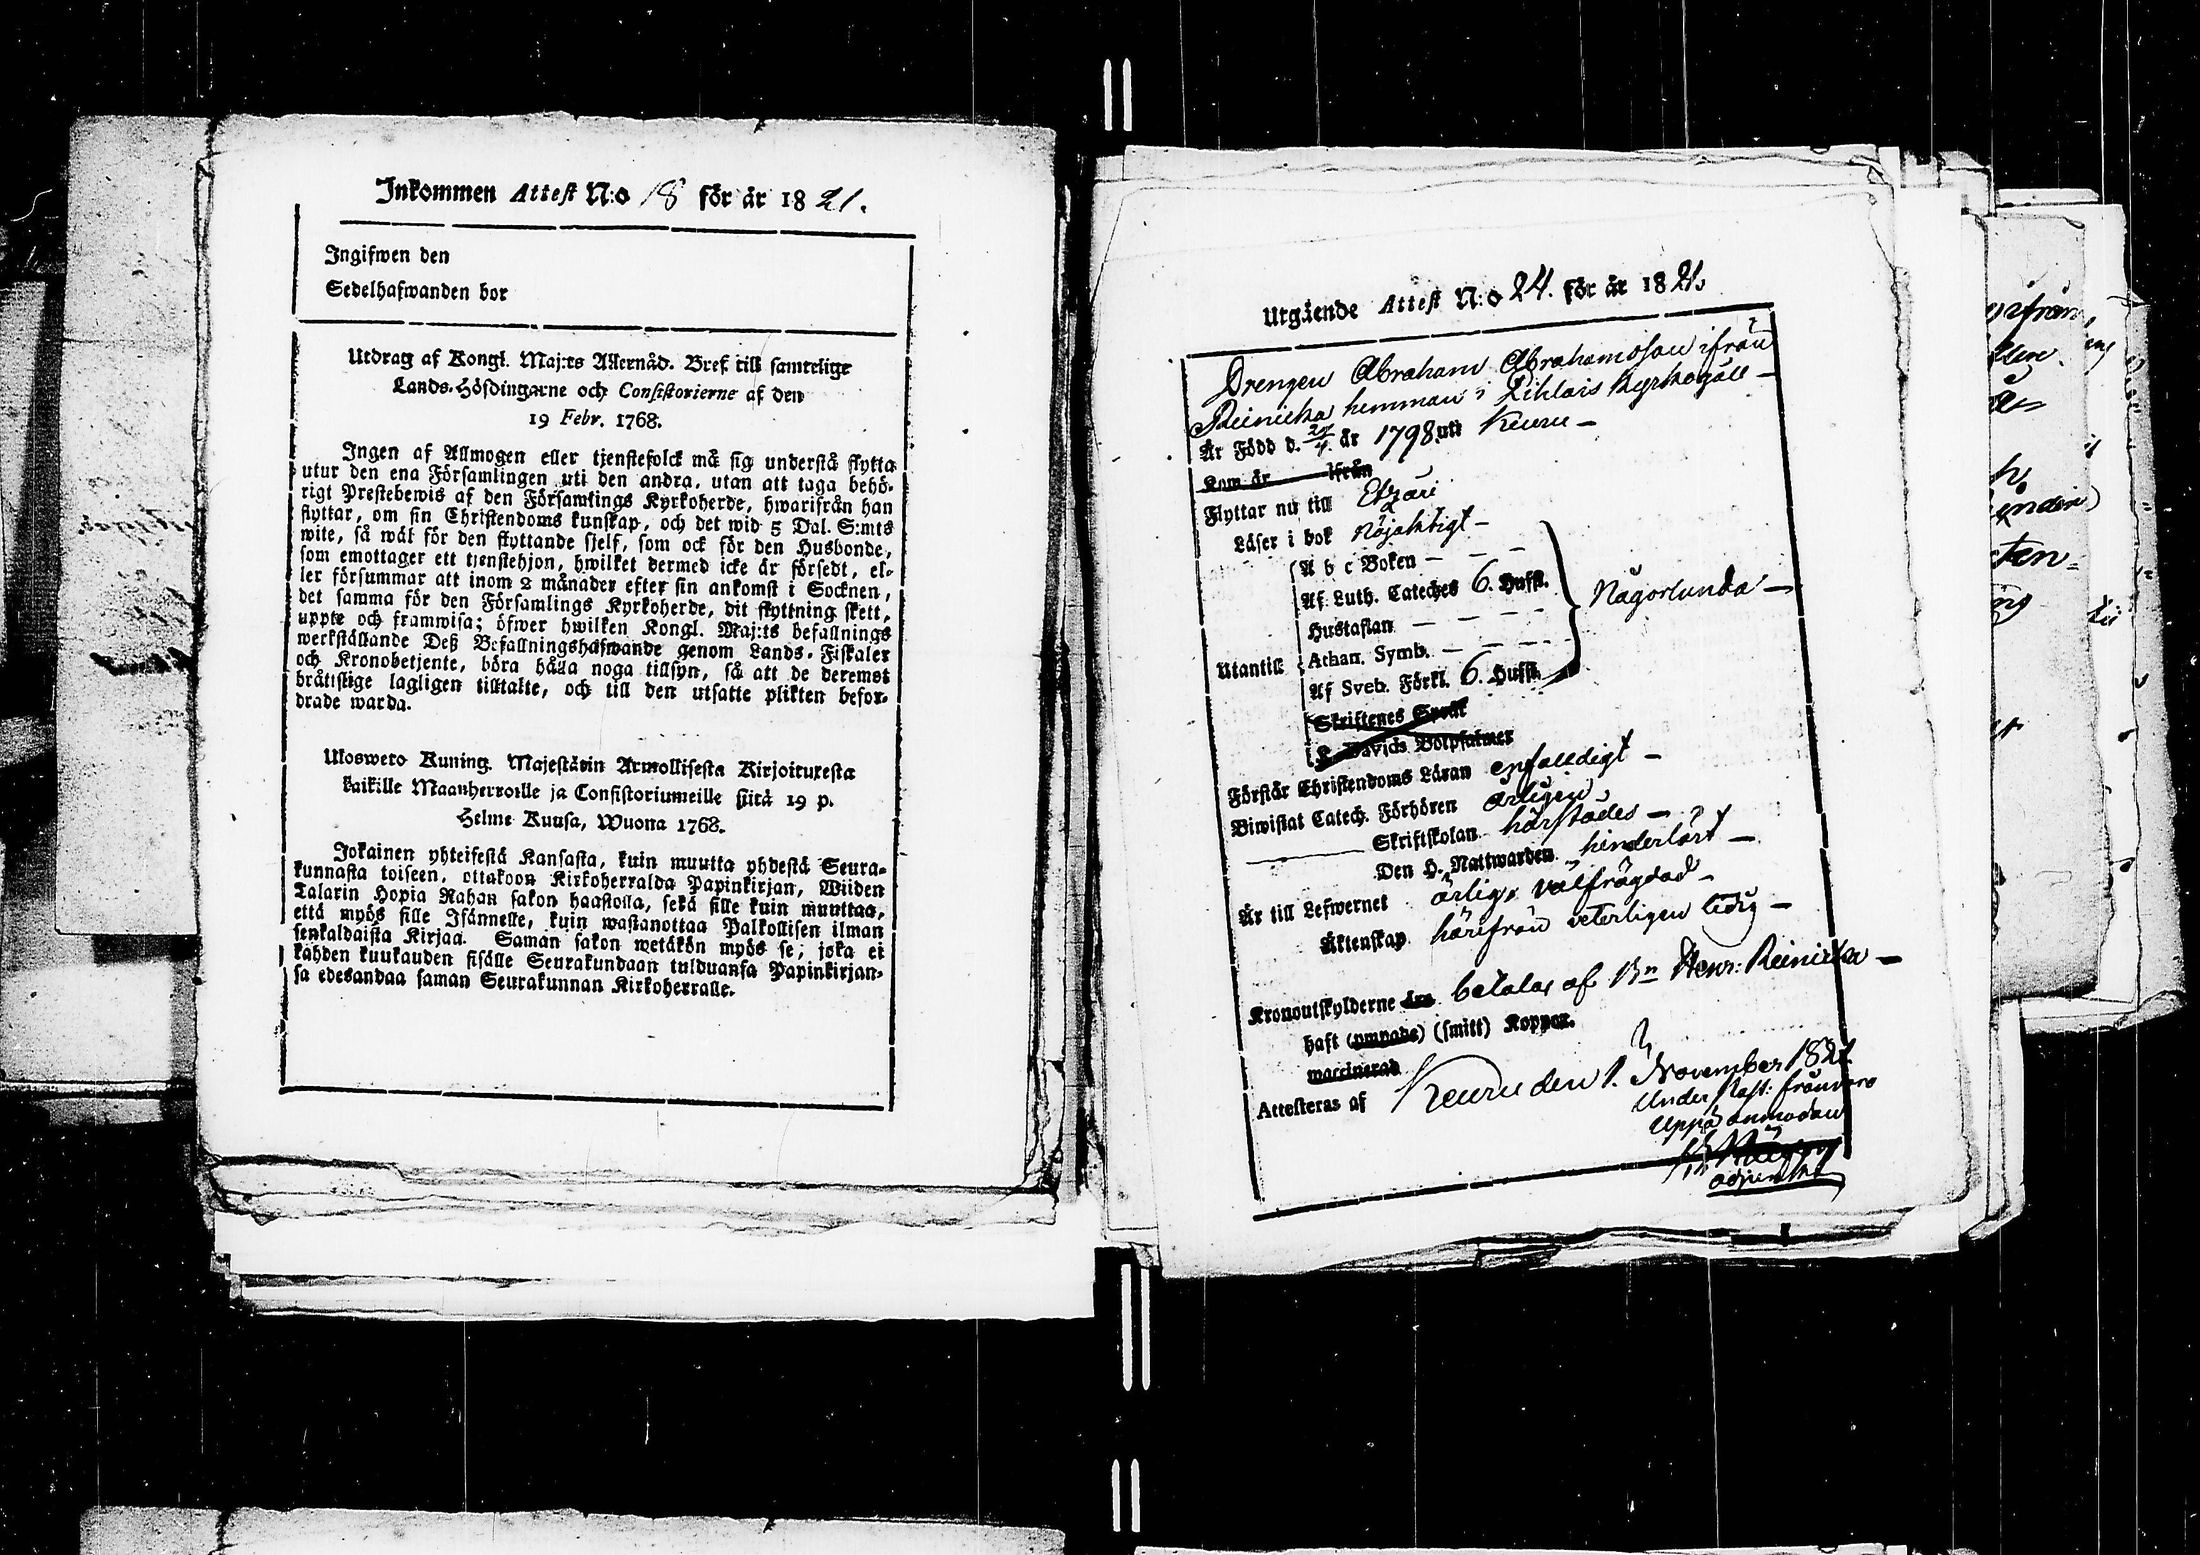 Inkommen Attest N:o 18 för år 1821.
Ingifwen den
Sedelhafwanden bor
Utdrag af Kongl. Maj:ts Allernåd. Bref till samtelige
Lands-Höfdingarne och Consistorierne af den
19 Febr. 1768.
Ingen af Allmogen eller tjenstefolck må sig understå flytta
utur den ena Församlingen uti den andra, utan att taga behö-
rigt Prestebewis af den Församlings Kyrkoherde, hwarifrån han
flyttar, om sin Christendoms kunskap, och det wid 5 Dal. S:mts
wite, så wäl för den flyttande sjelf, som ock för den Husbonde,
som emottager ett tjenstehjon, hwilket dermed icke är försedt, el-
ler försummar att inom 2 månader efter sin ankomst i Socknen,
det samma för den Församlings Kyrkoherde, dit flyttning skett,
uppte och framwisa; öfwer hwilken Kongl. Maj:ts befallnings
werkställande Deß Befallningshafwande genom Lands-Fiskaler
och Kronobetjente, böra hålla noga tillsyn, så att de deremot
bråttslige lagligen tilltalte, och till den utsatte plikten befor-
drade warda.
Ulosweto Kuning. Majestätin Armollisesta Kirjoituxesta
kaikille Maanherroille ja Consistoriumeille siitä 19 p.
Helme Kuusa, Wuona 1768.
Jokainen yhteisestä Kansasta, kuin muutta yhdestä Seura-
kunnasta toiseen, ottakoon Kirkoherralda Papinkirjan, Wiiden
Talarin Hopia Rahan sakon haastolla, sekä sille kuin muuttaa,
että myös sille Isännelle, kuin wastanottaa Palkollisen ilman
senkaldaista Kirjaa. Saman sakon wetäkön myös se, joka ei
kahden kuukauden sisälle Seurakundaan tulduansa Papinkirjan-
sa edesandaa saman Seurakunnan Kirkoherralle.
Utgående Attest N:o 24. för år 1821.
Drengen Abraham Abrahamsson ifrån
Reinicka hemman i Pihlais Kyrkogäll –
Är Född d. 27/4. år 1798 uti Keuru –
Kom år ifrån
Flyttar nu till Etzäri
Läser i bok nöjaktigt –
Utantill
A b c Boken – – –
Af Luth. Cateches 6. Hufst.
Hustaflan – – –
Athan. Symb. – – – –
Af Sveb. Förkl. 6. Hufst.
Någorlunda –
Skriftenes Språk
K. Davids Botpsalmer
Förstår Christendoms Läran enfalldigt –
Biwistat Catech. Förhören årligen
Skriftskolan härstädes –
Den H. Nattwarden hinderlöst –
Är till Lefwernet ärlig, välfrägdad –
Äktenskap härifrån veterligen ledig –
Kronoutskylderne äro betalas af Bn Henr: Reinicka –
haft (ympade) (smitt) Koppor.
waccinerad
Attesteras af Keuru den 1. November 1821
Under Past: frånvaro
Uppå anmodan
adjunkt